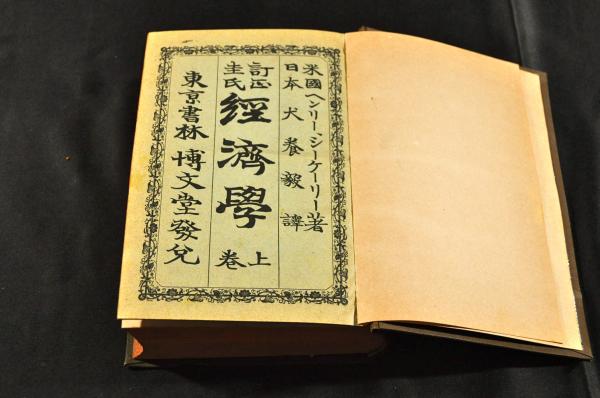 米國ヘンリー、シーケーリー著
日本犬養毅譯
訂正
圭氏
經濟學
上
卷
東京書林 博文堂發兌